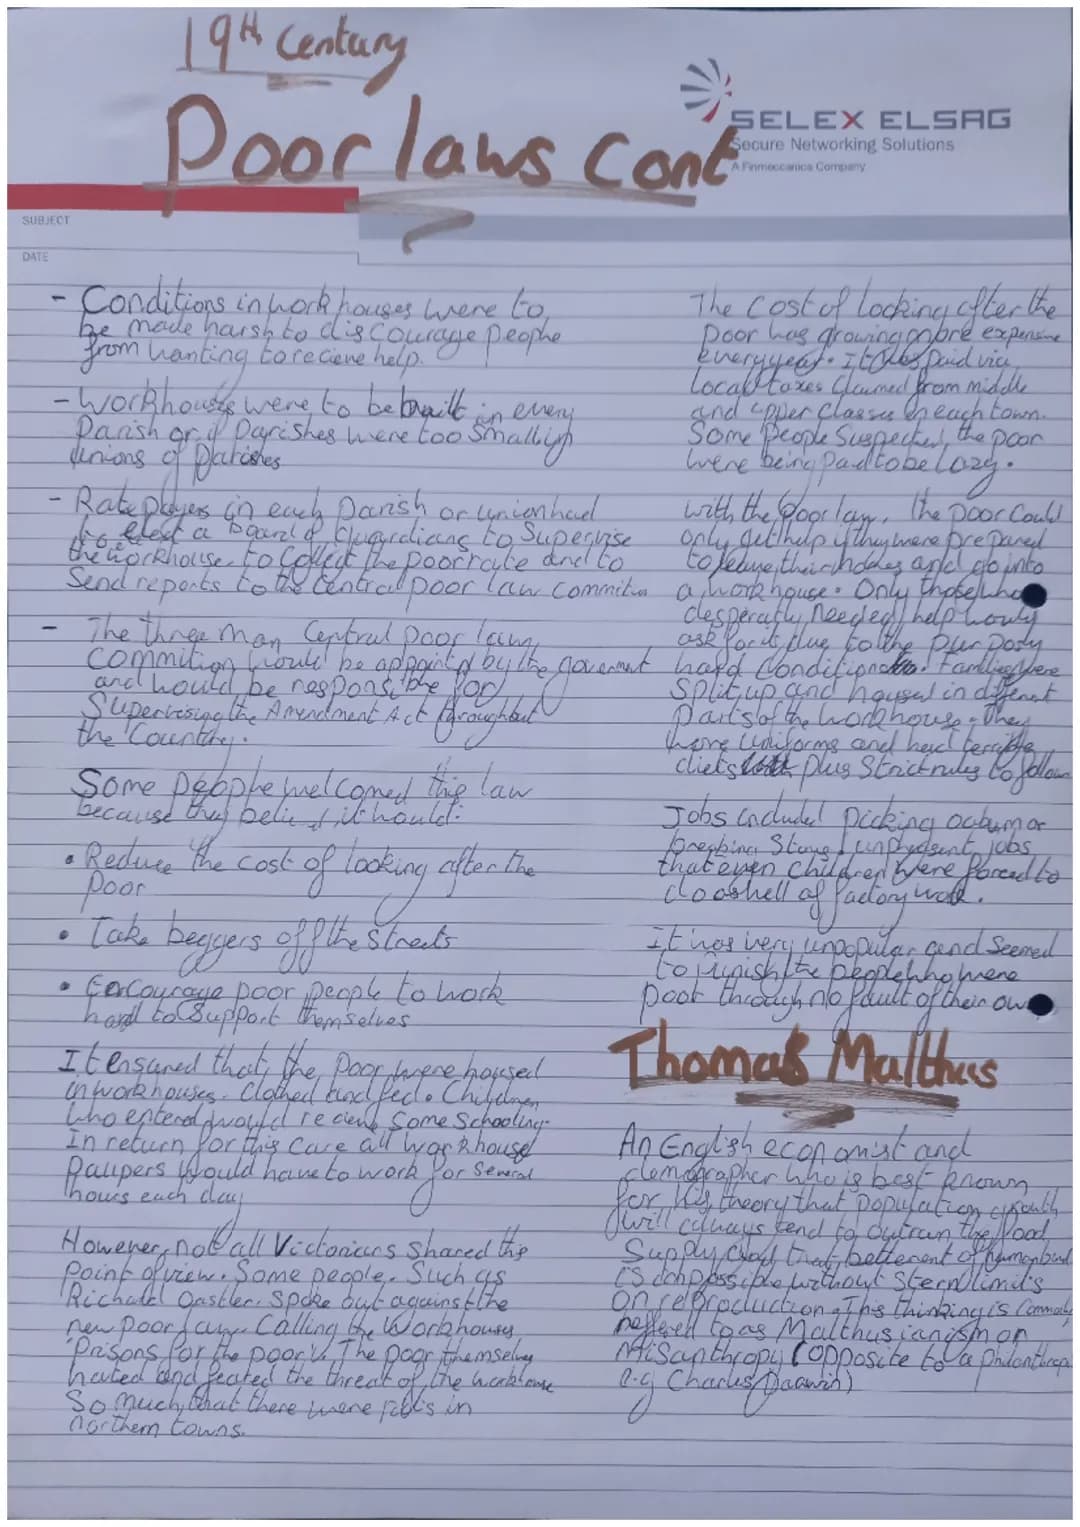 19th Century
Poor laws Cont
SELEX ELSAG
Secure Networking Solutions
A Finmeccanica Company
SUBJECT
DATE
- Conditions in workhouses were to
be made harsh to discourage people
from wanting to recieve help.
- Workhouses were to be built in every
Parish or if Parishes were too small in
unions of Parishes
- Rate Players in each Parish or union had
to elect a Board of Guardians to Supervise
the workhouse, to Collect the poor rate and to
Send reports to the Central poor law
- The three man Central Poor law
Commition would be appointed by the goverment
and would be responsible for
Supervising the Amendment Act throughout
the Country.
Some people welcomed this law
because they belived it would:
• Reduce the cost of looking after the
Poor
• Take beggers off the Streets
• Encourage poor people to work
hard to Support themselves
It ensured that the poor were housed
in workhouses. Clothed and fed. Children
who entered would recieve Some Schooling.
In return for this care all workhouse
Paupers would have to work for Several
hours each day
However, not all Victorians shared this
Point of view. Some people, Such as
Richard Oastler. Spoke out against the
new poor law. Calling the Workhouses,
'Prisons for the poor'. The poor themselves
hated and feared the threat of the workhouse
So much, that there were riots in
northern towns.
The Cost of looking after the
Poor was growing more expensive
every year. It was paid via
local taxes claimed from middle
and upper classes in each town.
Some People Suspected, the poor
were being paid to be lazy.
with the Poor law, the poor Could
only get help if they were prepared
to leave their homes and go into
a workhouse. Only those who
desperatly needed help would
ask for it due to the purposly
hard conditions. Families were
Split up and housed in different
Parts of the workhouse. they
wore uniforms and had terrible
diets plus Strict rules to follow
Jobs included picking or
breaking Stones unpleasent jobs
that even children were forced to
do as well as factory work.
It was very unpopular and Seemed
to punish the people who were
poor through no fault of their own
Thomas Malthus
An English economist and
demographer who is best known
for his theory that population growth
will always tend to outrun the food
Supply and that betterment of
is impossible without Stern limits
on reproduction. This thinking is Commonly
reffered to as Malthusianism or
Misanthropy (opposite to a philanthrop
e.g Charles Darwin)